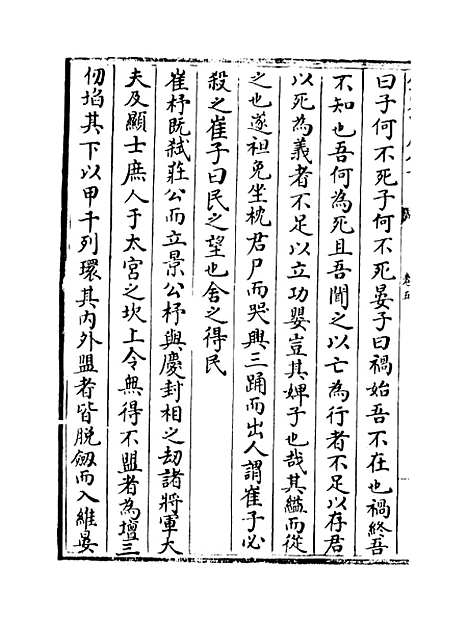 卷五
曰子何不死子何不死晏子曰禍始吾不在也禍終吾
不知也吾何為死且吾聞之以亡為行者不足以存君
以死為義者不足以立功嬰豈其婢子也哉其縊而從
之也遂袒免坐枕君尸而哭興三踊而出人謂崔子必
殺之崔子曰民之望也舍之得民
崔杼既弑莊公而立景公杼與慶封相之劫諸將軍大
夫及顯士庶人于太宮之坎上令無得不盟者為壇三
仞埳其下以甲千列環其內外盟者皆脱劔而入維晏